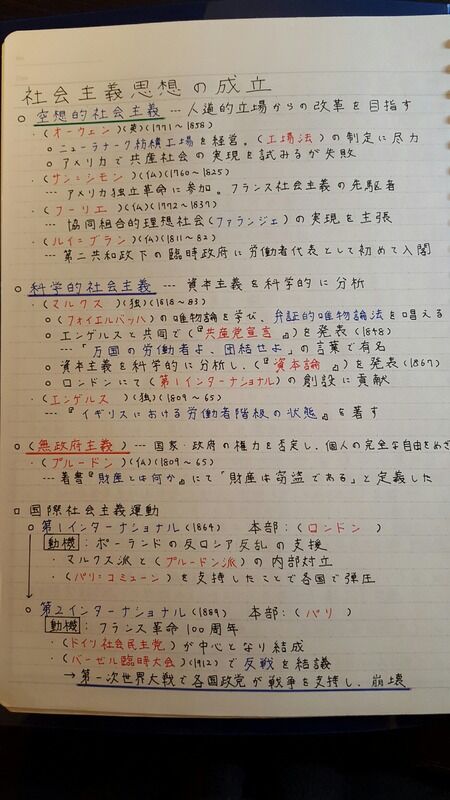 社会主義思想の成立
○ 空想的社会主義 --- 人道的立場からの改革を目指す
・(オーウェン)(英)(1771～1858)
○ ニューラナーク紡績工場を経営。(工場法)の制定に尽力
○ アメリカで共産社会の実現を試みるが失敗
・(サン=シモン)(仏)(1760～1825)
--- アメリカ独立革命に参加。フランス社会主義の先駆者
・(フーリエ)(仏)(1772～1837)
--- 協同組合的理想社会(ファランジェ)の実現を主張
・(ルイ=ブラン)(仏)(1811～82)
--- 第二共和政下の臨時政府に労働者代表として初めて入閣
○ 科学的社会主義 --- 資本主義を科学的に分析
・(マルクス)(独)(1818～83)
○ (フォイエルバッハ)の唯物論を学び、弁証的唯物論法を唱える
○ エンゲルスと共同で(『共産党宣言』)を発表(1848)
---「万国の労働者よ、団結せよ」の言葉で有名
○ 資本主義を科学的に分析し、(『資本論』)を発表(1867)
○ ロンドンにて(第1インターナショナル)の創設に貢献
・(エンゲルス)(独)(1809～65)
---『イギリスにおける労働者階級の状態』を著す
○ (無政府主義) --- 国家・政府の権力を否定し、個人の完全な自由をめざ
・(プルードン)(仏)(1809～65)
--- 著書『財産とは何か』にて「財産は窃盗である」と定義した
□ 国際社会主義運動
○ 第1インターナショナル(1864) 本部:(ロンドン)
動機:ポーランドの反ロシア反乱の支援
・マルクス派と(プルードン派)の内部対立
・(パリ=コミューン)を支持したことで各国で弾圧
○ 第2インターナショナル(1889) 本部:(パリ)
動機:フランス革命100周年
・(ドイツ社会民主党)が中心となり結成
・(バーゼル臨時大会)(1912)で反戦を決議
→ 第一次世界大戦で各国政党が戦争を支持し、崩壊